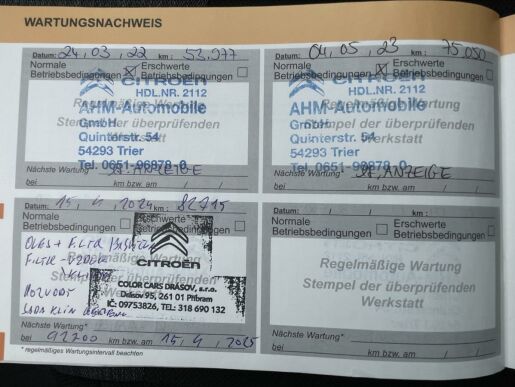 WARTUNGSNACHWEIS
Datum: 24, 03, 22 km: 53.977
Normale Betriebsbedingungen Erschwerte Betriebsbedingungen
CITROËN
HDL.NR. 2112
AHM-Automobile
GmbH
Quinterstr. 54
54293 Trier
Tel. 0651-96878-0
Regelmäßige Wartung
Stempel der überprüfenden
Werkstatt
Nächste Wartung* ANZEIGE
bei km bzw. am / /
Datum: 04, 05, 23 km: 75.050
Normale Betriebsbedingungen Erschwerte Betriebsbedingungen
CITROËN
HDL.NR. 2112
AHM-Automobile
GmbH
Quinterstr. 54
54293 Trier
Tel. 0651-96878-0
Regelmäßige Wartung
Stempel der überprüfenden
Werkstatt
Nächste Wartung* ANZEIGE
bei km bzw. am / /
Datum: 15, 4, 2024 km:
Normale Betriebsbedingungen Erschwerte Betriebsbedingungen
CITROËN
COLOR CARS DRÁSOV, s.r.o.
Drásov 95, 261 01 Příbram
IČ: 09753826, TEL.: 318 690 132
OLEJ + FILTR
FILTR
ROZVODY
SADA KLIN.
Regelmäßige Wartung
Stempel der überprüfenden
Werkstatt
Nächste Wartung*
bei 92200 km bzw. am 15, 4, 2025
* regelmäßiges Wartungsintervall beachten
Datum: / / km:
Normale Betriebsbedingungen Erschwerte Betriebsbedingungen
Regelmäßige Wartung
Stempel der überprüfenden
Werkstatt
Nächste Wartung*
bei km bzw. am / /